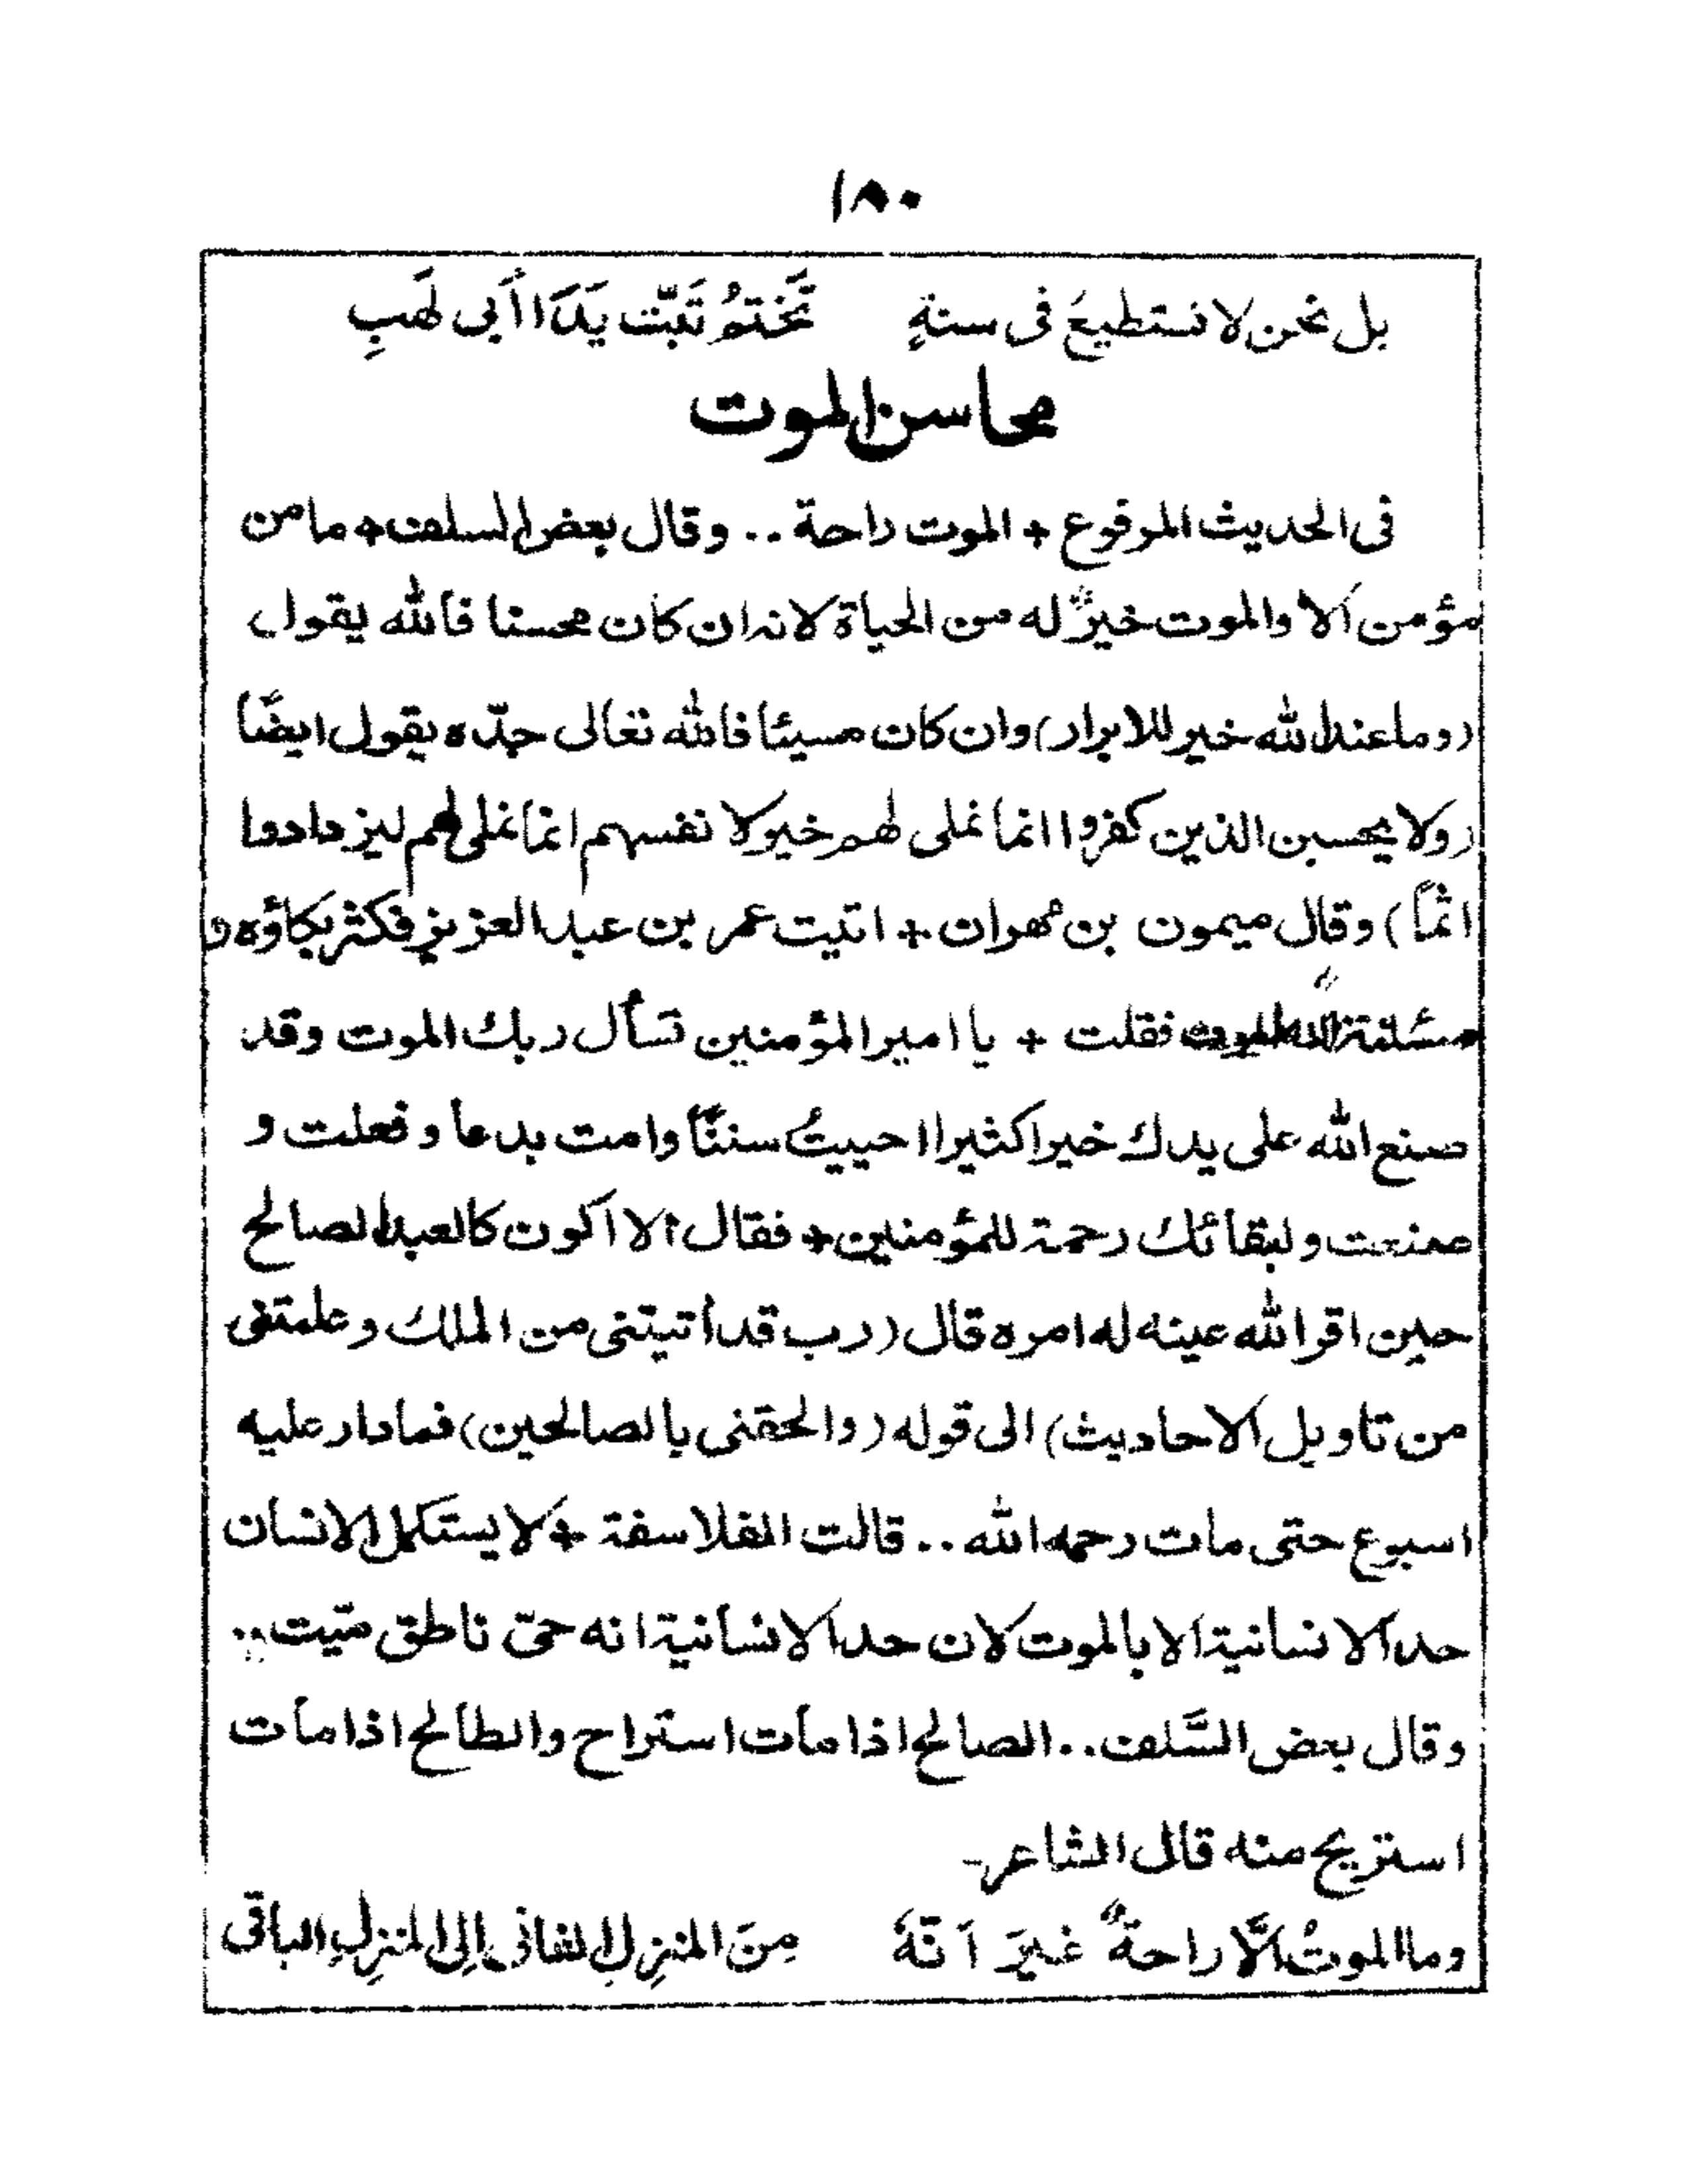 ١٨٠
بل نحن لا نستطيعَ فى سنةٍ تَختمُ تَبّت يَدَا أَبى لَهَبِ
محاسن الموت
فى الحديث المرفوع + الموت راحة .. وقال بعض السلف + ما من
مؤمن الا والموت خيرٌ له من الحياة لانه ان كان محسنا فالله يقول
(وما عند الله خير للابرار) وان كان مسيئا فالله تعالى جدّه يقول ايضًا
(ولا يحسبن الذين كفروا انما نملى لهم خير لا نفسهم انما نملى لهم ليزدادوا
اثمًا) وقال ميمون بن مهران + اتيت عمر بن عبد العزيز فكثر بكاؤه و
مسئلته الموت فقلت + يا امير المؤمنين تسأل ربك الموت وقد
صنع الله على يدك خيرا كثيرا احييتُ سننًا وامت بدعا وفعلت و
صنعت ولبقائك رحمة للمؤمنين + فقال الا اكون كالعبد الصالح
حين اقر الله عينه له امره قال (رب قد أتيتنى من الملك وعلمتنى
من تاويل الاحاديث) الى قوله (والحقنى بالصالحين) فما دار عليه
اسبوع حتى مات رحمه الله .. قالت الفلاسفة + لا يستكمل الانسان
حد الانسانية الا بالموت لان حد الانسانية انه حىّ ناطق ميّت ..
وقال بعض السَّلف .. الصالح اذا مات استراح والطالح اذا مات
استريح منه قال الشاعر-
وما الموتُ الَّا راحةٌ غيرَ اَنّهٗ مِنَ المنزِلِ الفانى اِلى المنزِلِ الباقى